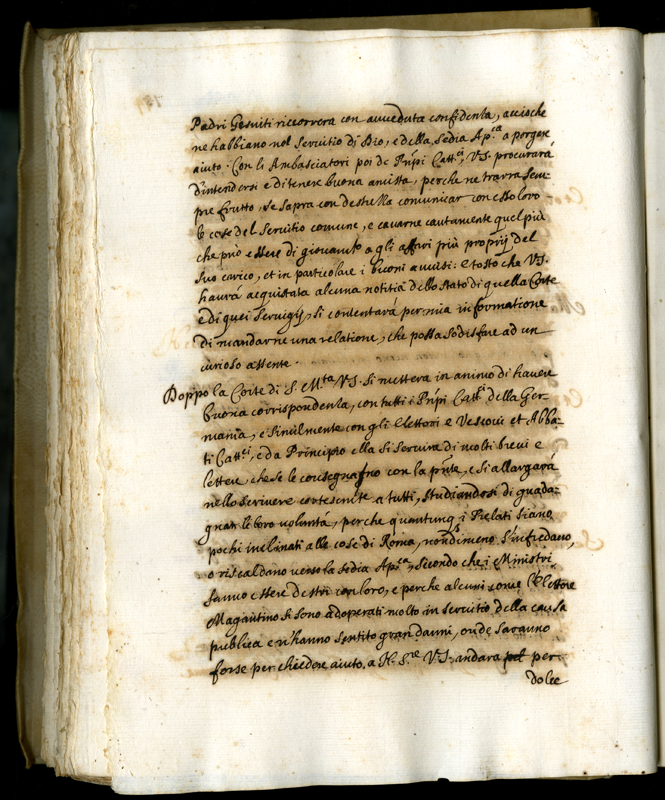 Padri Gesuiti riccorrera con avveduta confidenza, accioche
ne habbiano nel Servitio di Dio, e della Sedia Ap.ca a porgere
aiuto. Con li Ambasciatori poi de Pnpi Catt.ci V.S. procurará
d'intendersi e di tenere buona amistà, perche ne trarra sem-
pre frutto, se sapra con destrezza comunicar con esso loro
le cose del servitio comune, e cavarne cautamente quel piu
che può essere di giovamto a gli affari più proprij del
suo carico, et in particolare i buoni avvisi: e tosto che V.S.
haurá acquistata alcuna notitia dello stato di quella Corte
e di quei Servigij, si contentará per mia informatione
di mandarne una relatione, che possa sodisfare ad un
curioso assente.
Doppo la Corte di S. M.ta V.S. si mettera in animo di havere
buona corrispondenza, con tutti i Pnpi Catt.ci della Ger-
mania, e similmente con gli Elettori e Vescovi et Abba-
ti Catt.ci, e da Principio ella si servira di molti brevi e
lettere, che se le consegnano con la pnte, e si allargará
nello scrivere cortesemte a tutti, studiandosi di guada-
gnar le loro voluntá, perche quantunq. i Prelati siano
pochi inclinati alle cose di Roma, nondimeno s'infredano,
o riscaldano verso la sedia Ap.ca, secondo che i Ministri
sanno essere destri con loro, e perche alcuni come l'Elettore
Magantino si sono adoperati molto in servitio della causa
publica e n'hanno sentito gran danni, onde saranno
forse per chiedere aiuto, a N. S.re V.S. andara per
dolce